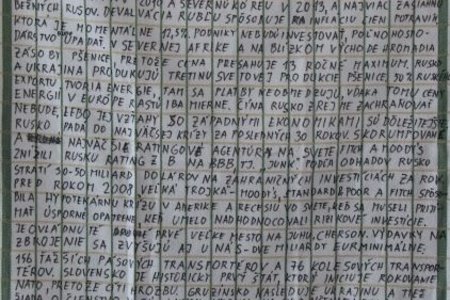 BEŽNÝCH RUSOV. DE 2010 A SEVERNÚ KÓREU 2013, A NAJVIAC ZASIAHNU
VÁCIA RUBĽU SPÔSOBUJE INFLÁCIU CIEN POTRAVÍN,
KTORÁ JE MOMENTÁLNE 17,5%. PODNIKY NEBUDÚ INVESTOVAŤ, POĽNOHOSPO-
DÁRSTVO UPADÁ. V SEVERNEJ AFRIKE A NA BLÍZKOM VÝCHODE HROMADIA
ZÁSOBY PŠENICE, PRETOŽE CENA PRESAHUJE 13 ROČNÉ MAXIMUM. RUSKO
A UKRAJINA PRODUKUJÚ TRETINU SVETOVEJ PRODUKCIE PŠENICE. 30 % RUSKÉHO
EXPORTU TVORIA ENERGIE, TAM SA PLATBY NEOBMEDZUJÚ, VĎAKA TOMU CENY
ENERGIÍ V EURÓPE RASTÚ IBA MIERNE. ČÍNA RUSKO ZREJME ZACHRAŇOVAŤ
NEBUDE, LEBO JEJ VZŤAHY SO ZÁPADNÝMI EKONOMIKAMI SÚ DÔLEŽITEJŠIE
RUSKO PADÁ DO NAJVÄČŠEJ KRÍZY ZA POSLEDNÝCH 30 ROKOV. SKORUMPOVANÉ
A NAJVÄČŠIE RATINGOVÉ AGENTÚRY NA SVETE, FITCH A MOODY'S
ZNÍŽILI RUSKU RATING Z B NA BBB TJ. JUNK. PODĽA ODHADOV RUSKO
STRATÍ 30-50 MILIARD DOLÁROV NA ZAHRANIČNÝCH INVESTÍCIÁCH ZA ROK.
PRED ROKOM 2008 VEĽKÁ TROJKA- MOODY'S, STANDARD & POOR A FITCH SPÔSO-
BILA HYPOTEKÁRNU KRÍZU V AMERIKE A RECESIU VO SVETE, KEĎ SA MUSELI PRIJÍ-
MAŤ ÚSPORNÉ OPATRENIA, KEĎ UMELO NADHODNOCOVALI RIZIKOVÉ INVESTÍCIE.
JE OVLÁDNUTÉ DRUHÉ PRVÉ VEĽKÉ MESTO NA JUHU, CHERSON. VÝDAVKY NA
ZBROJENIE SA ZVYŠUJÚ AJ U NÁS - DVE MILIARDY EUR MINIMÁLNE.
156 ŤAŽŠÍCH PÁSOVÝCH TRANSPORTÉROV A 76 KOLESOVÝCH TRANSPOR-
TÉROV. SLOVENSKO JE HISTORICKY PRVÝ ŠTÁT, KTORÝ INICIUJE ROKOVANIE
NATO, PRETOŽE CÍTI HROZBU. GRUZÍNSKO NASLEDUJE UKRAJINU A TIEŽ